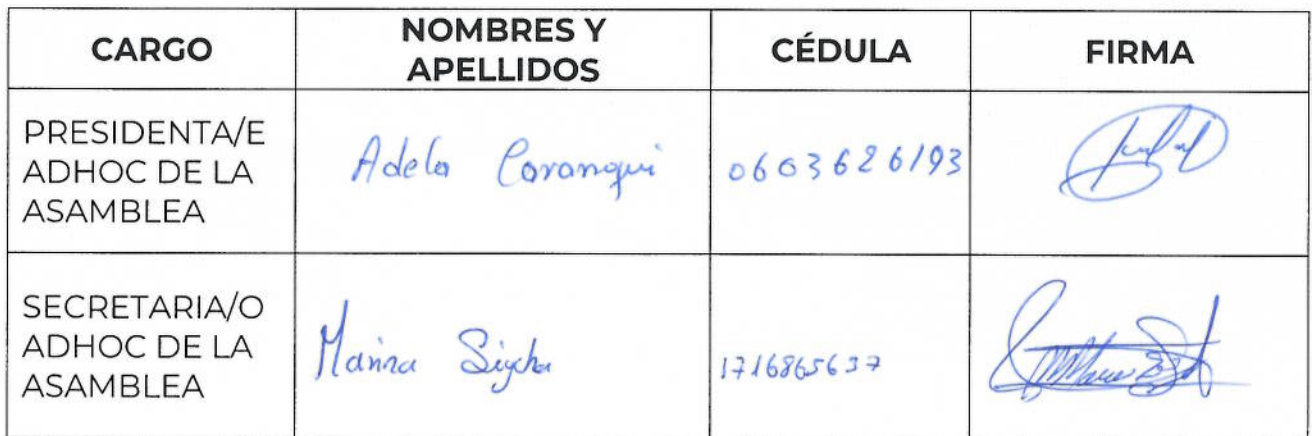 CARGO
NOMBRES Y
APELLIDOS
CÉDULA
FIRMA
PRESIDENTA/E
ADHOC DE LA
ASAMBLEA
Adela Caranqui
0603626193
SECRETARIA/O
ADHOC DE LA
ASAMBLEA
1716865637